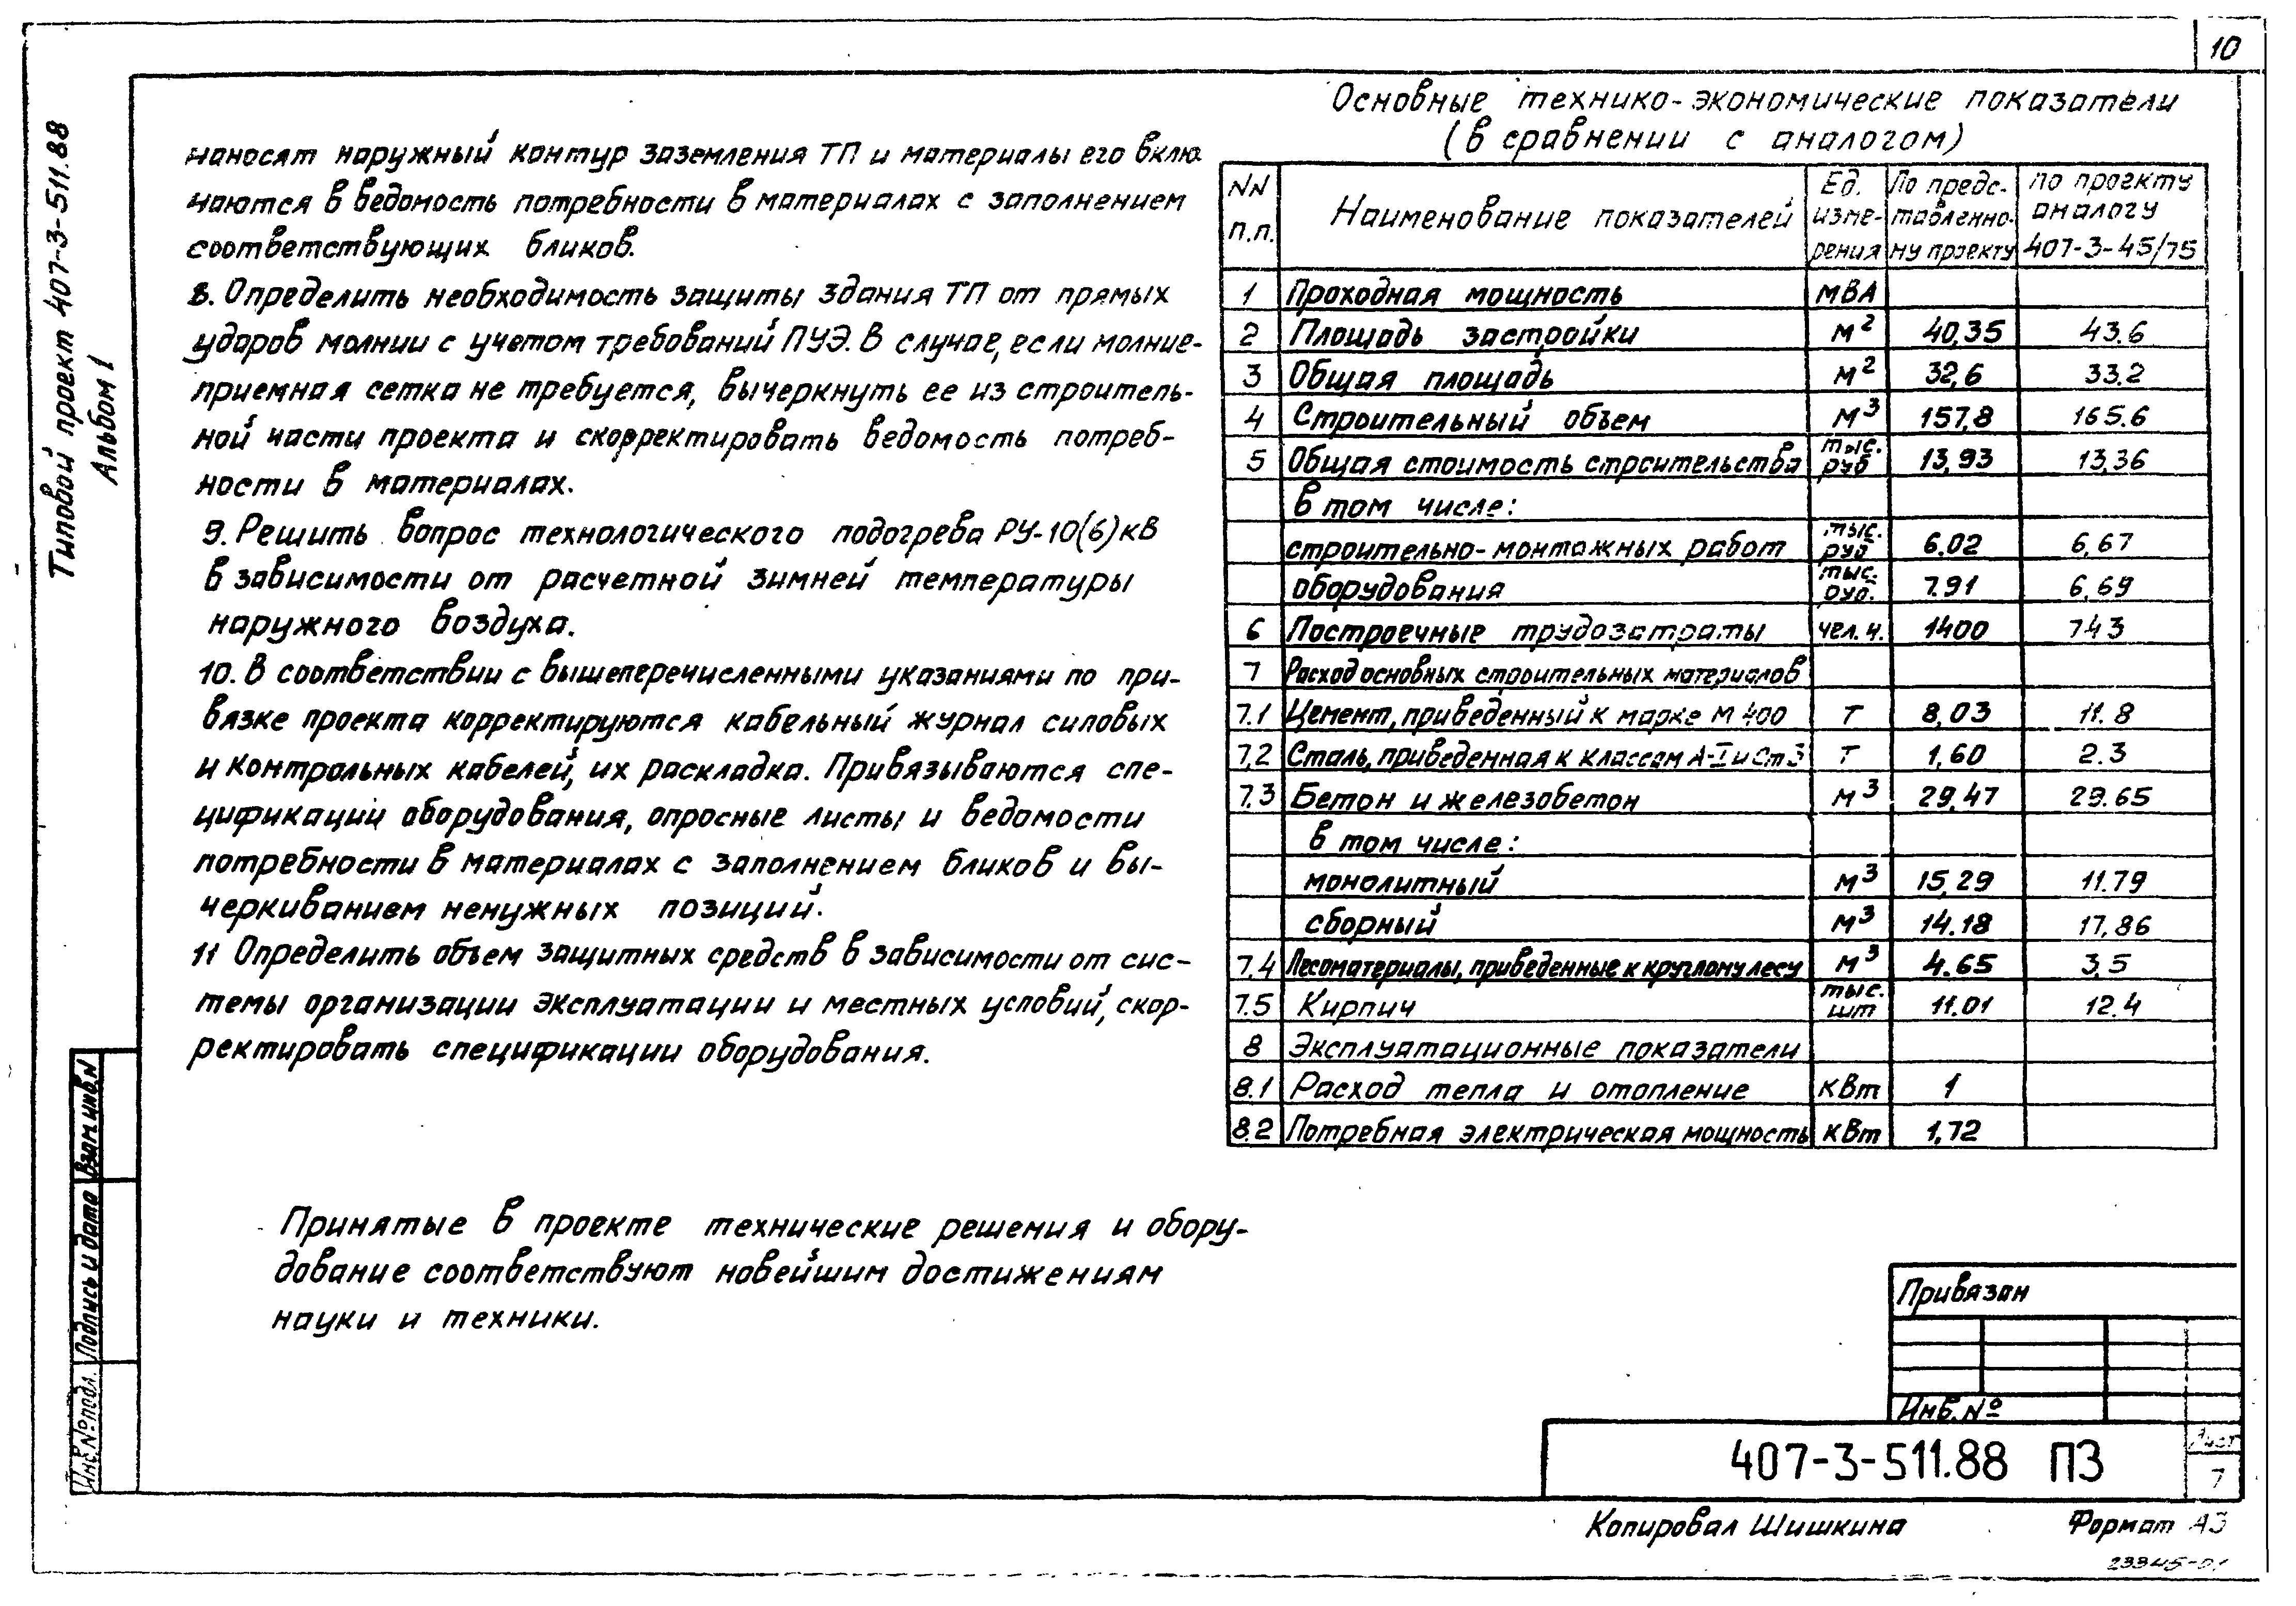 10
Типовой проект 407-3-511.88
Альбом I
наносят наружный контур заземления ТП и материалы его вклю
чаются в ведомость потребности в материалах с заполнением
соответствующих бликов.
8. Определить необходимость защиты здания ТП от прямых
ударов молнии с учетом требований ПУЭ. В случае, если молние-
приемная сетка не требуется, вычеркнуть ее из строитель-
ной части проекта и скорректировать ведомость потреб-
ности в материалах.
9. Решить вопрос технологического подогрева РУ-10(6)кВ
в зависимости от расчетной зимней температуры
наружного воздуха.
10. В соответствии с вышеперечисленными указаниями по при-
вязке проекта корректируются кабельный журнал силовых
и контрольных кабелей, их раскладка. Привязываются спе-
цификации оборудования, опросные листы и ведомости
потребности в материалах с заполнением бликов и вы-
черкиванием ненужных позиций.
11 Определить объем защитных средств в зависимости от сис-
темы организации эксплуатации и местных условий, скор-
ректировать спецификации оборудования.
Принятые в проекте технические решения и обору-
дование соответствуют новейшим достижениям
науки и техники.
Основные технико-экономические показатели
(в сравнении с аналогом)
NN п.п. Наименование показателей Ед. изме- рения По предс- тавленно- му проекту по проекту аналогу 407-3-45/75
1 Проходная мощность МВА
2 Площадь застройки м² 40,35 43.6
3 Общая площадь м² 32,6 33.2
4 Строительный объем м³ 157,8 165.6
5 Общая стоимость строительства тыс. руб 13,93 13,36
в том числе:
строительно-монтажных работ тыс. руб 6.02 6,67
оборудования тыс. руб. 7.91 6,69
6 Построечные трудозатраты чел.ч. 1400 743
7 Расход основных строительных материалов
7.1 Цемент, приведенный к марке М 400 Т 8,03 11.8
7,2 Сталь, приведенная к классам А-I и Ст3 Т 1,60 2.3
7.3 Бетон и железобетон м³ 29,47 29.65
в том числе:
монолитный м³ 15,29 11.79
сборный м³ 14.18 17,86
7.4 Лесоматериалы, приведенные к круглому лесу м³ 4.65 3,5
7.5 Кирпич тыс. шт 11.01 12.4
8 Эксплуатационные показатели
8.1 Расход тепла и отопление кВт 1
8.2 Потребная электрическая мощность кВт 1,72
Взам инв.N
Подпись и дата
Инв.№ подл.
Привязан
Инв.№
407-3-511.88 ПЗ
Лист
7
Копировал Шишкина Формат А3
23345-01